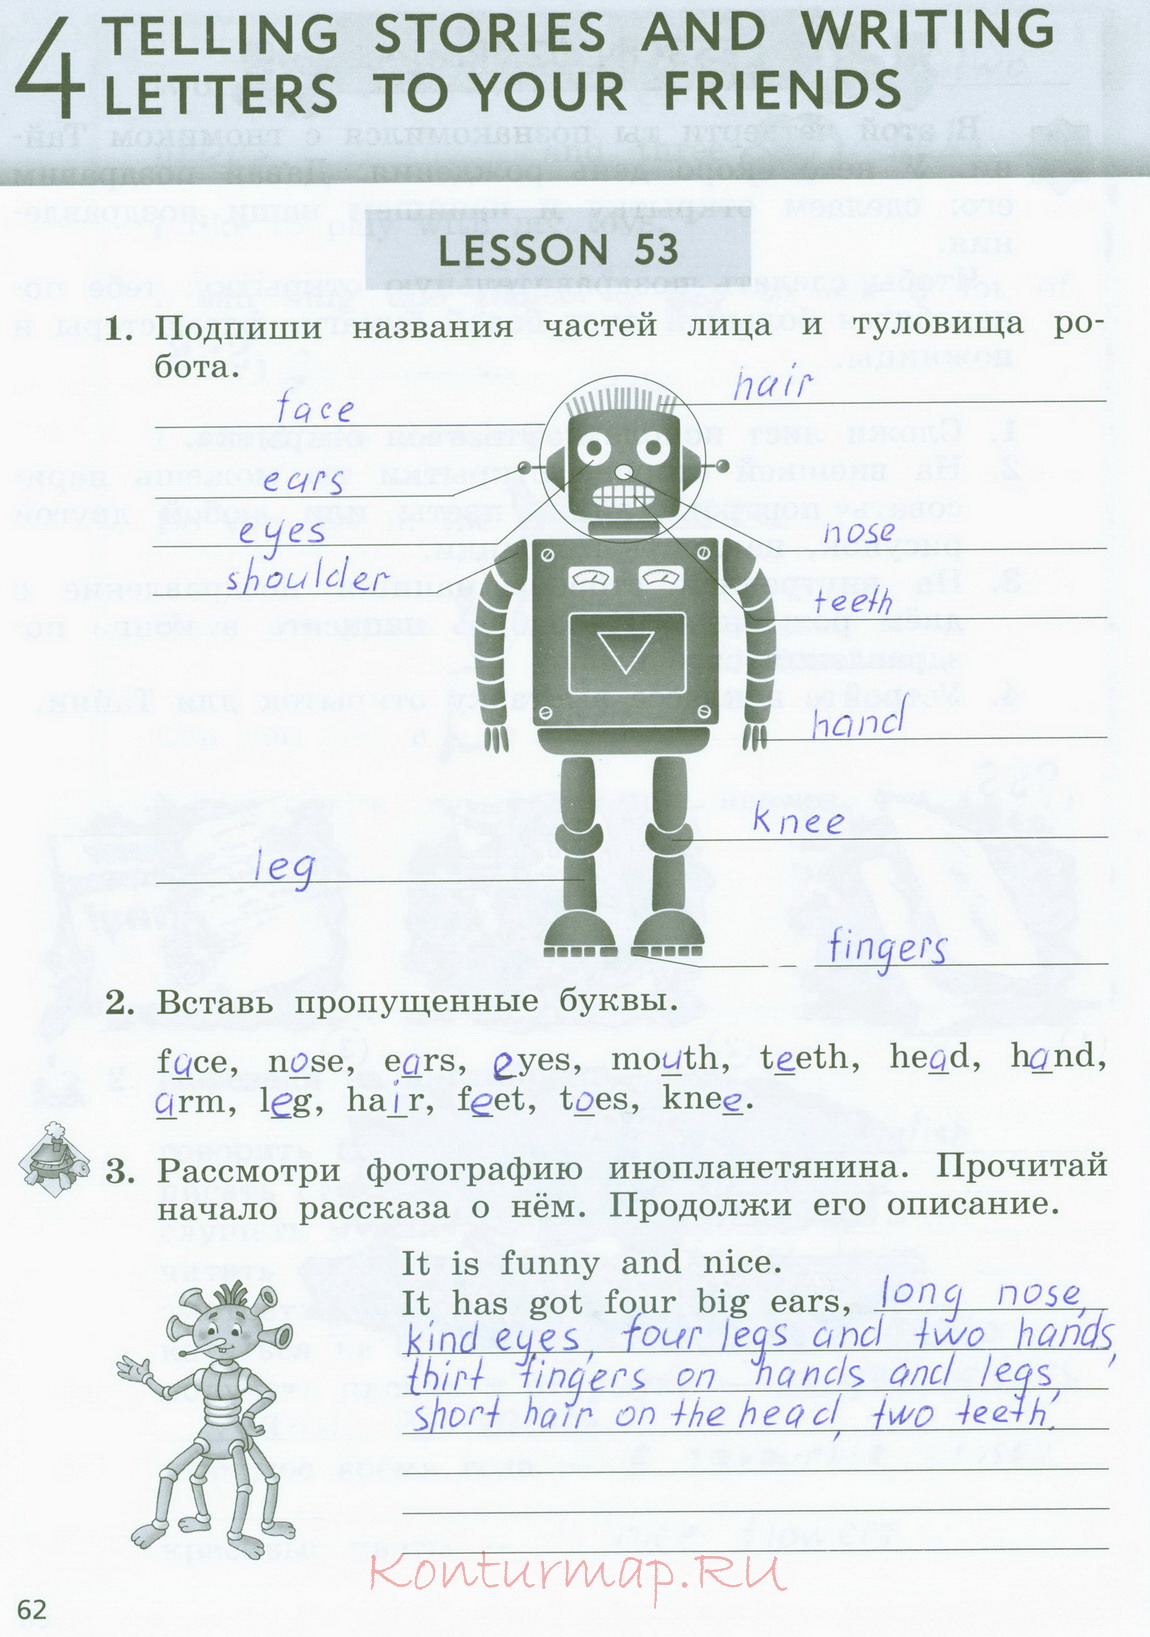 4 TELLING STORIES AND WRITING
LETTERS TO YOUR FRIENDS
LESSON 53
1. Подпиши названия частей лица и туловища ро-
бота.
face
hair
ears
eyes
nose
shoulder
teeth
hand
knee
leg
fingers
2. Вставь пропущенные буквы.
face, nose, ears, eyes, mouth, teeth, head, hand,
arm, leg, hair, feet, toes, knee.
3. Рассмотри фотографию инопланетянина. Прочитай
начало рассказа о нём. Продолжи его описание.
It is funny and nice.
It has got four big ears, long nose,
kind eyes, four legs and two hands,
thirt fingers on hands and legs,
short hair on the head, two teeth.
Konturmap.RU
62